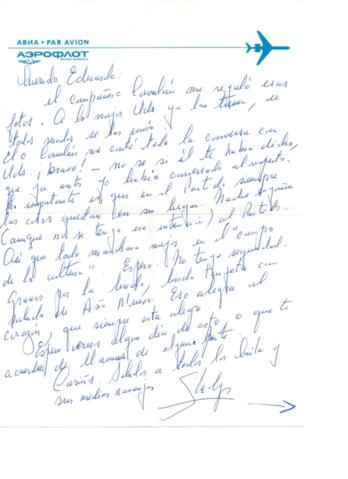 АВИА • PAR AVION
АЭРОФЛОТ
Querido Eduardo:
el compañero Corvalán me regaló esas
fotos. A lo mejor Uds ya las tienen, de
todos modos se las envío.
El Corvalán me contó toda la conversa con
Uds. ¡bravo! — no se si él te habrá dicho,
que ya antes yo había conversado al respecto.
Lo importante es que en el Partido siempre
las cosas quedan en su lugar. Nadie engaña
(aunque no se tenga esa intención) al Partido.
Así que todo marchará mejor en el "campo
de la cultura". Espero. No tengo seguridad.
Gracias por la linda, linda tarjeta con
saludo de Año Nuevo. Eso alegra el
corazón, que siempre esta alegre.
Espero vernos algún día de esto, o que te
acuerdes de llamarme de alguna parte.
Cariños. Saludos a todos los
y
sus medios naranjas.